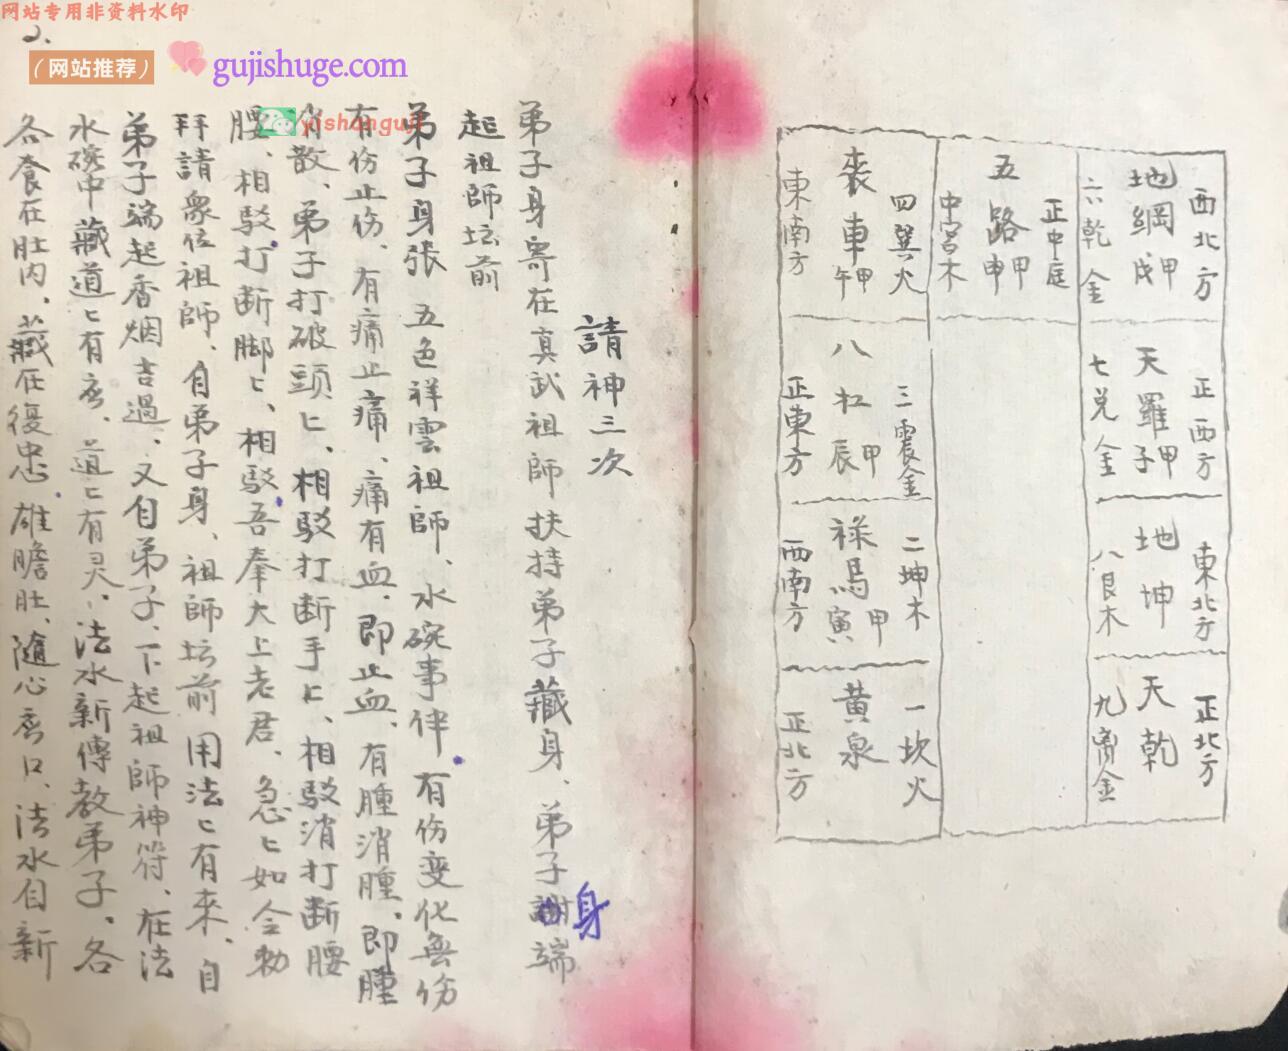 网站专用非资料水印
2.
（网站推荐）
gujishuge.com
yishanguji
西北方
地網甲戌
六乾金
正西方
天羅甲子
七兌金
東北方
地坤
八艮木
正北方
天乾
九离金
正中庭
五路甲申
中宮木
四巽火
裘車甲午
東南方
三震金
八杠甲辰
正東方
二坤木
禄馬甲寅
西南方
一坎火
黄泉
正北方
請神三次
弟子身寄在真武祖師扶持弟子藏身、弟子身端
起祖師坛前
弟子身張 五色祥雲祖師、水碗事伴、有伤变化無伤
有伤止伤、有痛止痛、痛有血、即止血、有腫消腫、即腫
消散、弟子打破頭匕、相駁打断手匕、相駁消打断腰
腰、相駁打断脚匕、相駁吾奉大上老君、急匕如令勅
拜請衆位祖師、自弟子身、祖師坛前用法匕有来、自
弟子端起香烟吉過、又自弟子、下起祖師神符、在法
水碗中藏道匕有 道匕有灵、法水新傳教弟子、各
各食在肚内、藏在復忠、雄膽肚、隨心 口、法水自新